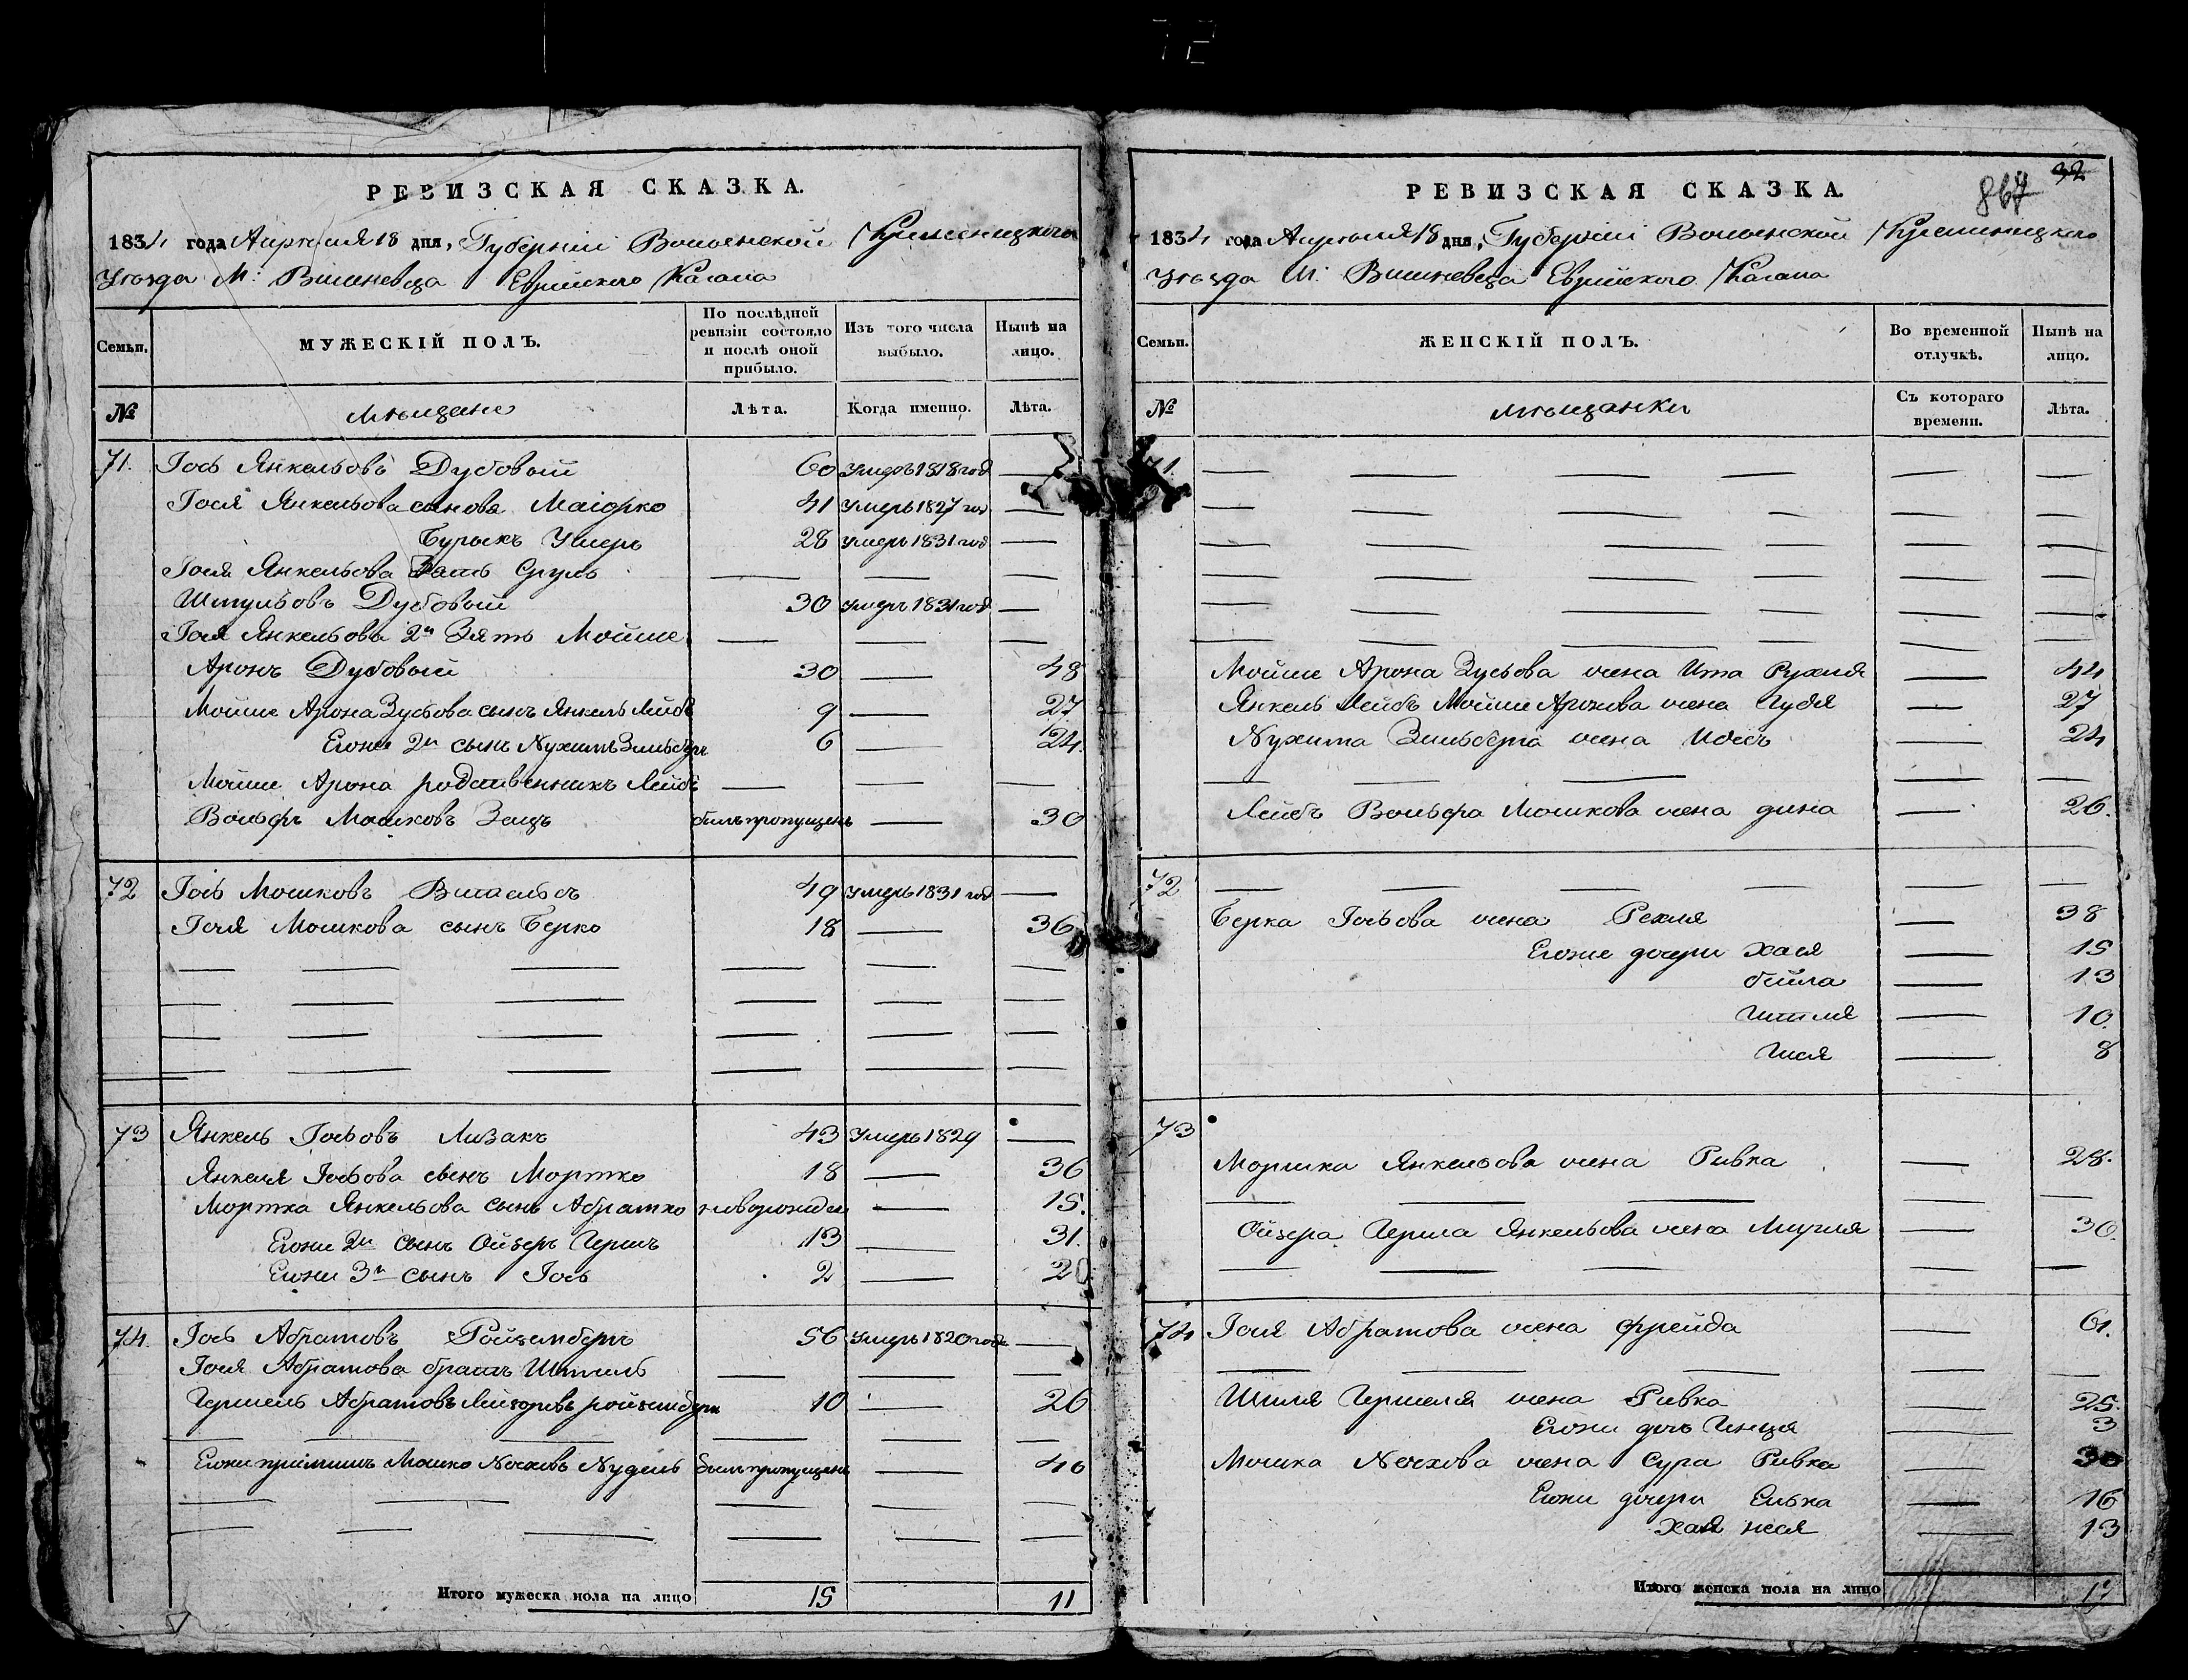 РЕВИЗСКАЯ СКАЗКА.
1834 года Апреля 18 дня, Губернiи Волынской Кременецкого
Уѣзда М: Вишневца Еврейского Кагала
Семьи.
МУЖЕСКІЙ ПОЛЪ.
По послѣдней ревизіи состояло и послѣ оной прибыло.
Изъ того числа выбыло.
Нынѣ на лицо.
№
мѣщане
Лѣта.
Когда именно.
Лѣта.
71. Іось Янкельовъ Дубовый 60 умеръ 1818 год —
Іося Янкельова сынова Маіорко 41 умеръ 1827 год —
Бурыкъ Умеръ 28 умеръ 1831 год —
Іося Янкельова Зять Сруль — — —
Шмульовъ Дубовый 30 умеръ 1831 год —
Іося Янкельова 2й Зять Мойше — — —
Аронъ Дубовый 30 — 48
Мойше Арона Зусьова сынъ Янкель Лейбъ 9 — 27
Егоже 2й сынъ Нухимъ Зильберъ 6 — 24.
Мойше Арона родственникъ Лейбъ — — —
Вольфъ Мошковъ Заецъ былъ пропущенъ — 30
72 Іось Мошковъ 49 умеръ 1831 год —
Іося Мошкова сынъ Берко 18 — 36
73 Янкель Іосьовъ Лизакъ 43 Умеръ 1829 —
Янкеля Іосьова сынъ Мортко 18 — 36
Мортка Янкельова сынъ Абрамко новорожден — 15.
Егоже 2й сынъ Ойзеръ Гершъ 13 — 31.
Егоже 3й сынъ Іось 2 — 20
74. Іось Абрамовъ Ройзенберъ 56 умеръ 1820 года —
Іося Абрамова братъ Шмиль — — —
Гершель Абрамовъ Лейзоровъ ройзенберъ 10 — 26
Егоже приймишъ Мошко Нехховъ Нудель былъ пропущенъ — 40
Итого мужеска пола на лицо 15 11
32
867
РЕВИЗСКАЯ СКАЗКА.
1834 года Апреля 18 дня, Губернiи Волынской Кременецкого
Уѣзда М: Вишневца Еврейского Кагала
Семьи.
ЖЕНСКІЙ ПОЛЪ.
Во временной отлучкѣ.
Нынѣ на лицо.
№
мѣщанки
Съ котораго времени.
Лѣта.
71.
Мойше Арона Зусьова жена Ита Рухля — 44
Янкель Лейбъ Мойше Аронова жена Гудя — 27
Нухима Зильбера жена — 24
Лейбъ Вольфа Мошкова жена дина — 26.
72
Берка Іосьова жена Рехля — 38
Егоже дочери Хася — 15
бейла — 13
Гитля — 10.
Гися — 8
73
Моршка Янкельова жена Ривка — 28.
Ойзера Герша Янкельова жена Мирля — 30.
74 Іося Абрамова жена фрейда — 61.
Шмиля Гершеля жена Ривка — 25.
Егоже дочь Гинця — 3
Мошка Нехова жена Сура Ривка — 30
Егоже дочери Елька — 16
Хая неся — 13
Итого женска пола на лицо